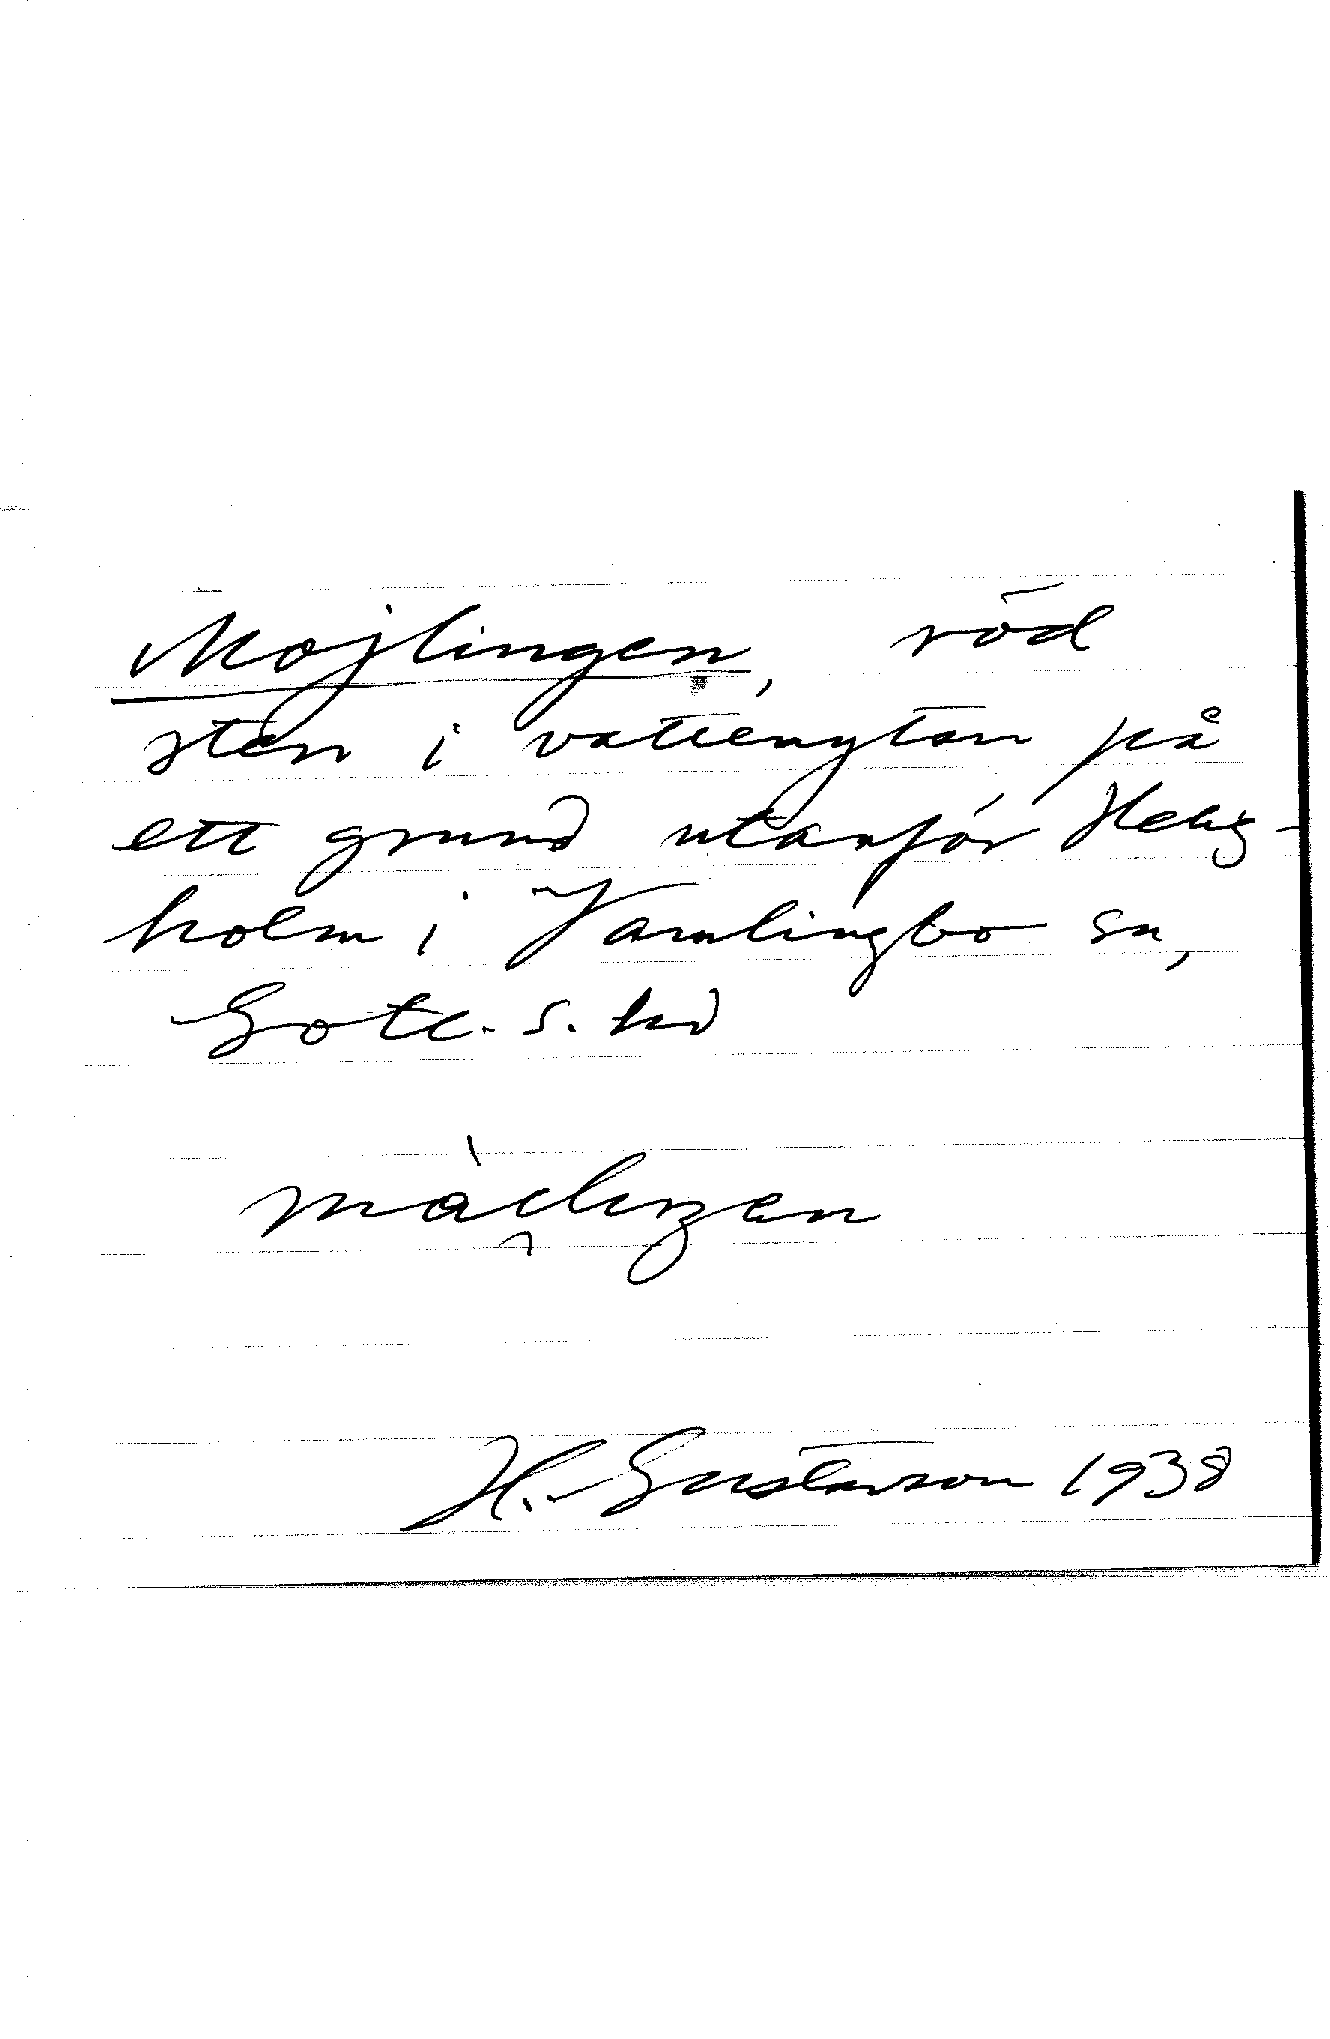 Mojlingen, röd
sten i vattenytan på
ett grund utanför Helig-
holm i Vamlingbo sn,
Gotl. s. hd
H. Gustavson 1938